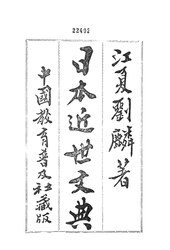 22602
江夏劉麟著
日本近世文典
中國教育普及社藏版